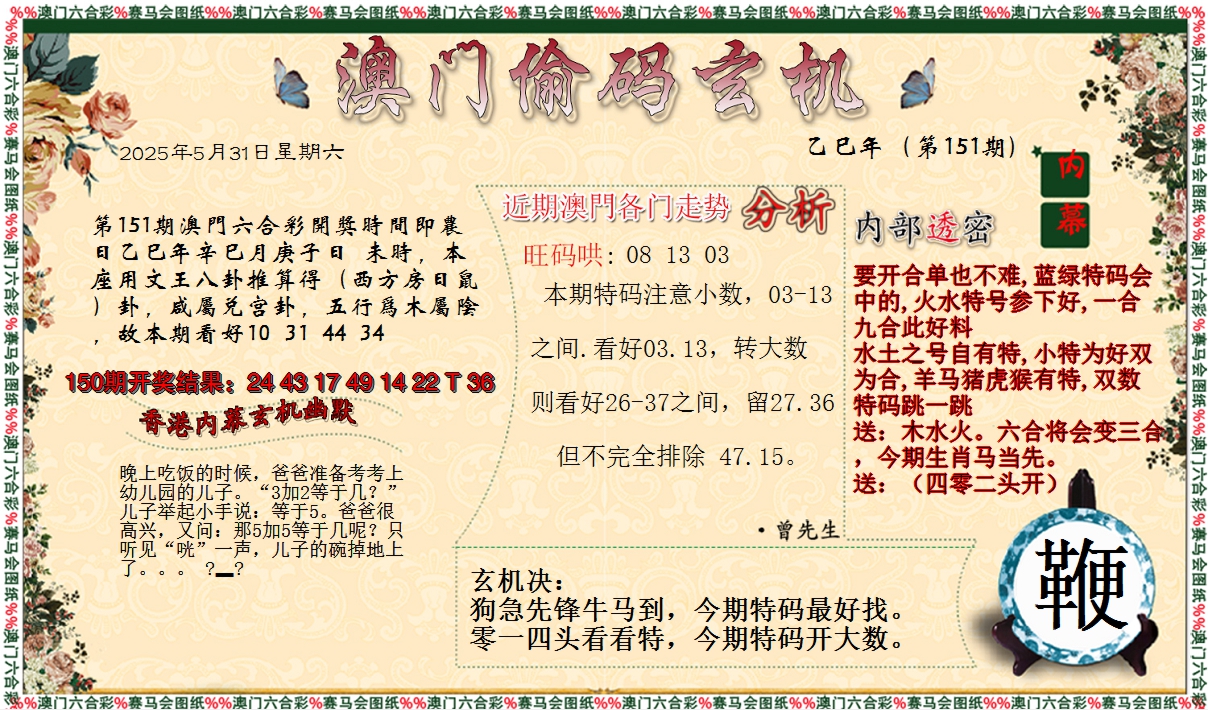 %%澳门六合彩%赛马会图纸%%澳门六合彩%赛马会图纸%%澳门六合彩%赛马会图纸%%澳门六合彩%赛马会图纸%%澳门六合彩%赛马会图纸%%澳门六合彩%赛马会图纸%%
澳门偷码玄机
2025年5月31日星期六
乙巳年（第151期）
内幕
第151期澳門六合彩開獎時間即農
日乙巳年辛巳月庚子日 未時，本
座用文王八卦推算得（西方房日鼠
）卦，咸屬兑宫卦，五行爲木屬陰
，故本期看好10 31 44 34
150期开奖结果：24 43 17 49 14 22 T 36
香港内幕玄机幽默
晚上吃饭的时候，爸爸准备考考上
幼儿园的儿子。“3加2等于几？”
儿子举起小手说：等于5。爸爸很
高兴，又问：那5加5等于几呢？只
听见“咣”一声，儿子的碗掉地上
了。。。 ?▂?
近期澳門各门走势 分析
旺码哄: 08 13 03
本期特码注意小数，03-13
之间.看好03.13，转大数
则看好26-37之间，留27.36
但不完全排除 47.15。
·曾先生
内部透密
要开合单也不难,蓝绿特码会
中的,火水特号参下好,一合
九合此好料
水土之号自有特,小特为好双
为合,羊马猪虎猴有特,双数
特码跳一跳
送：木水火。六合将会变三合
，今期生肖马当先。
送：（四零二头开）
玄机决：
狗急先锋牛马到，今期特码最好找。
零一四头看看特，今期特码开大数。
鞭
%%澳门六合彩%赛马会图纸%%澳门六合彩%赛马会图纸%%澳门六合彩%赛马会图纸%%澳门六合彩%赛马会图纸%%澳门六合彩%赛马会图纸%%澳门六合彩%赛马会图纸%%
%%澳门六合彩%赛马会图纸%%澳门六合彩%赛马会图纸%%澳门六合彩%赛马会图纸%%澳门六合彩
%%澳门六合彩%赛马会图纸%%澳门六合彩%赛马会图纸%%澳门六合彩%赛马会图纸%%澳门六合彩